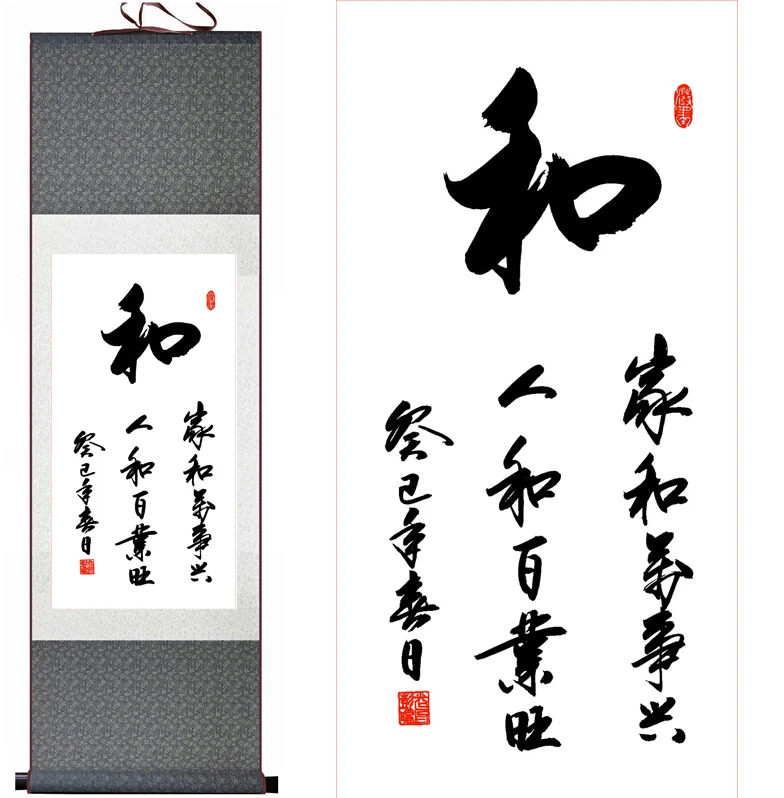 和
家和萬事兴
人和百業旺
癸巳年春日
和
家和萬事兴
人和百業旺
癸巳年春日